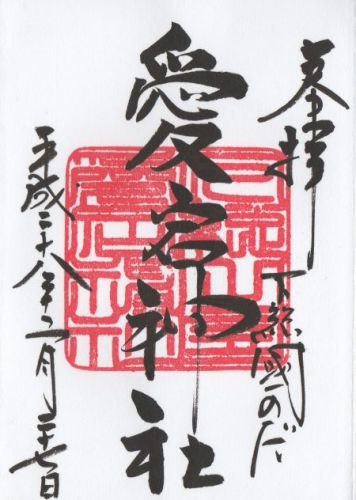 奉拝
下総國のだ
愛宕神社
平成二十八年二月二十七日